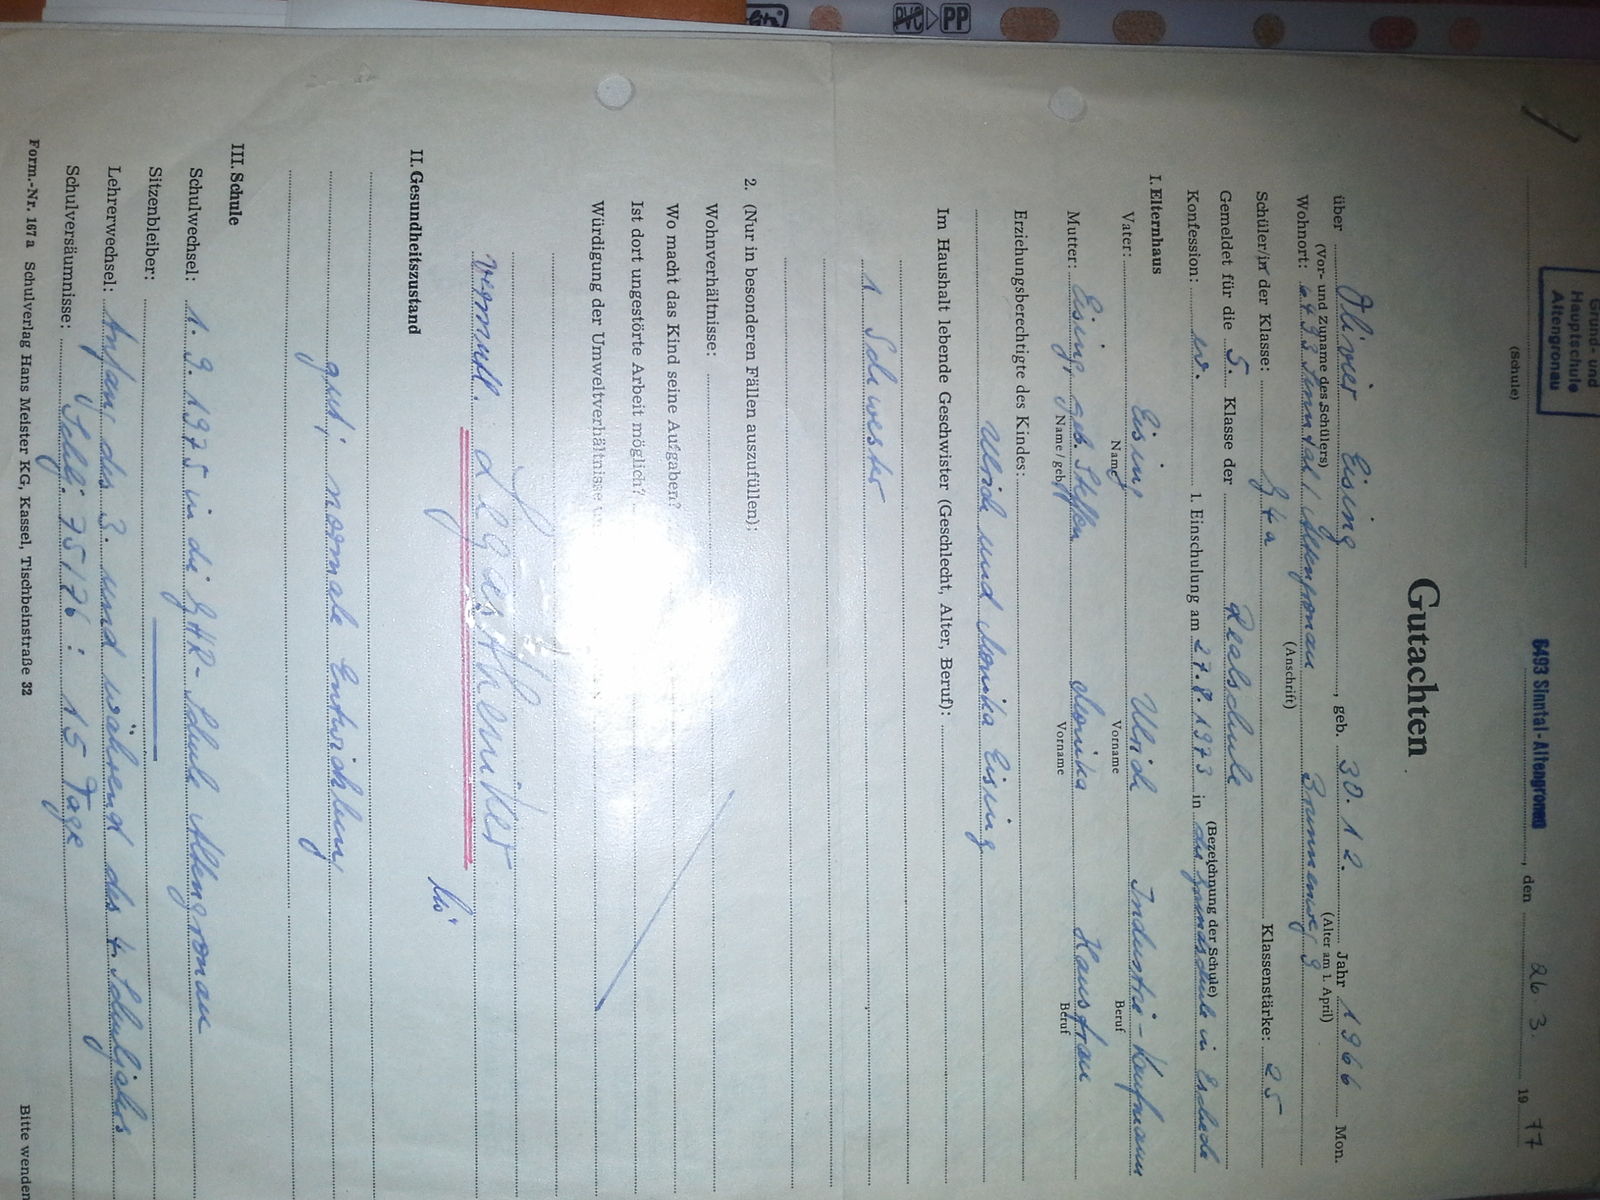 Grund- und
Hauptschule
Altengronau
6493 Sinntal-Altengronau, den 26 3. 19 77
(Schule)
Gutachten
über Olivier Eising, geb. 30. 12. Jahr 1966 Mon.
(Vor- und Zuname des Schülers) (Alter am 1. April)
Wohnort: 6493 Sinntal 1 Altengronau Brunnenweg 9
(Anschrift)
Schüler/in der Klasse: G4a Klassenstärke: 25
Gemeldet für die 5. Klasse der Realschule
(Bezeichnung der Schule)
Konfession: ev. 1. Einschulung am 27.8.1973 in der Grundschule in Eschede
I. Elternhaus
Vater: Eising Ulrich Industrie-Kaufmann
Name Vorname Beruf
Mutter: Eising, geb. Steffen Monika Hausfrau
Name / geb. Vorname Beruf
Erziehungsberechtigte des Kindes:
Ulrich und Monika Eising
Im Haushalt lebende Geschwister (Geschlecht, Alter, Beruf):
1 Schwester
2. (Nur in besonderen Fällen auszufüllen):
Wohnverhältnisse:
Wo macht das Kind seine Aufgaben?
Ist dort ungestörte Arbeit möglich?
Würdigung der Umweltverhältnisse
vermutl. Legastheniker
II. Gesundheitszustand
gut; normale Entwicklung
III. Schule
Schulwechsel: 1. 9. 1975 in die GHR-Schule Altengronau
Sitzenbleiber:
Lehrerwechsel: Anfang des 3. und während des 4. Schuljahres
Schulversäumnisse: Schlj. 75/76: 15 Tage
Form.-Nr. 167 a Schulverlag Hans Meister KG, Kassel, Tischbeinstraße 32 Bitte wenden
PP